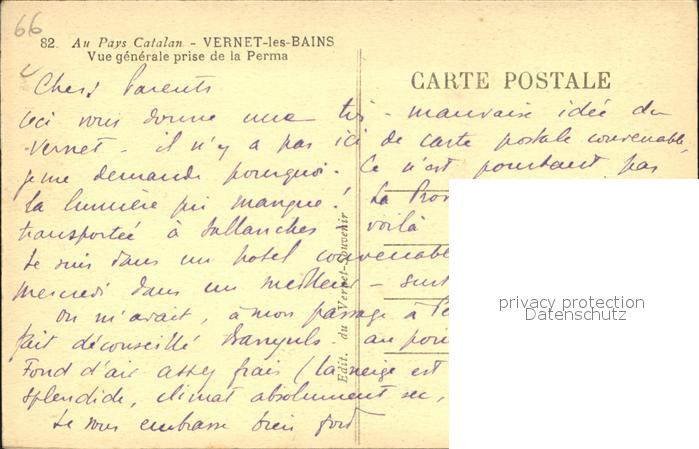 66
82. Au Pays Catalan - VERNET-les-BAINS
Vue générale prise de la Perma
CARTE POSTALE
Chers Parents
Ceci vous donne une très mauvaise idée du
Vernet - il n'y a pas ici de carte postale convenable,
je me demande pourquoi. Ce n'est pourtant pas
la lumière qui manque! La
transportée à Sallanches - voilà
Je suis dans un hotel convenable
mercredi dans un meilleur -
On m'avait, à mon passage à
fait déconseillé Banyuls -
Fond d'air assez frais (la neige est
splendide, climat absolument sec,
Je vous embrasse bien fort
Edit. du Vernet-Souvenir
privacy protection
Datenschutz